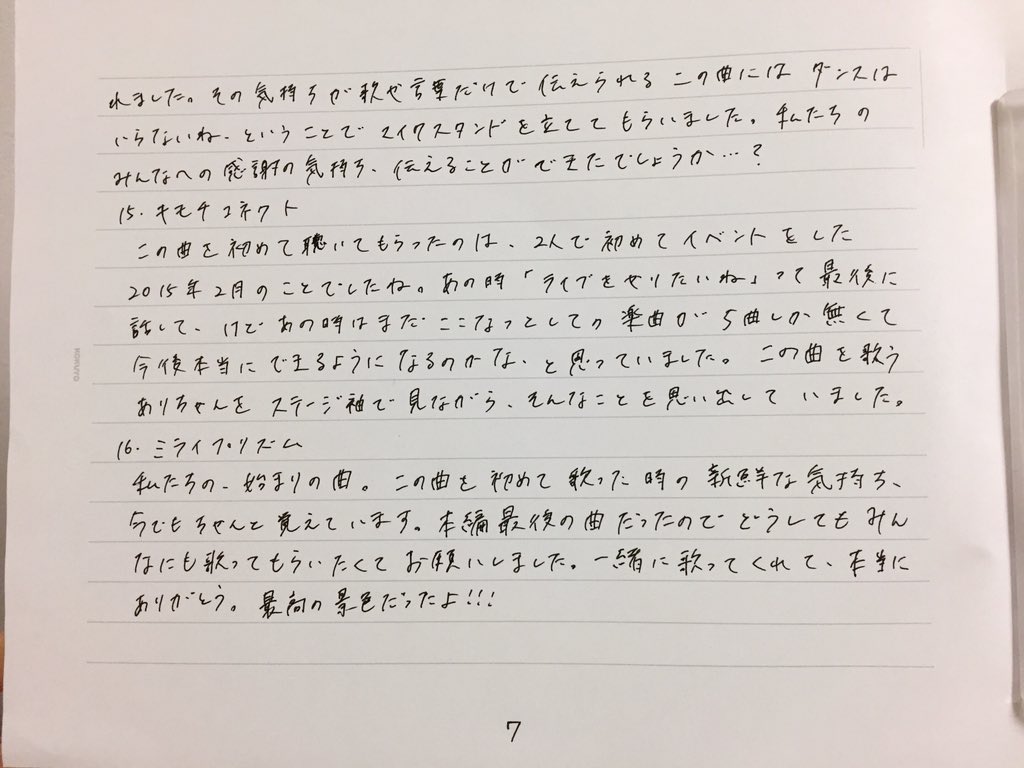 れました。その気持ちが歌や言葉だけで伝えられるこの曲には ダンスは
いらないね、ということでマイクスタンドを立ててもらいました。私たちの
みんなへの感謝の気持ち、伝えることができたでしょうか…?
15. キモチコネクト
この曲を初めて聴いてもらったのは、2人で初めてイベントをした
2015年2月のことでしたね。あの時「ライブをやりたいね」って最後に
話して、けどあの時はまだここなつとしての楽曲が5曲しか無くて
今後本当にできるようになるのかな、と思っていました。この曲を歌う
ありちゃんをステージ袖で見ながら、そんなことを思い出していました。
16. ミライプリズム
私たちの、始まりの曲。この曲を初めて歌った時の新鮮な気持ち、
今でもちゃんと覚えています。本編最後の曲だったのでどうしてもみん
なにも歌ってもらいたくてお願いしました。一緒に歌ってくれて、本当に
ありがとう。最高の景色だったよ!!!
7
KOKUYO